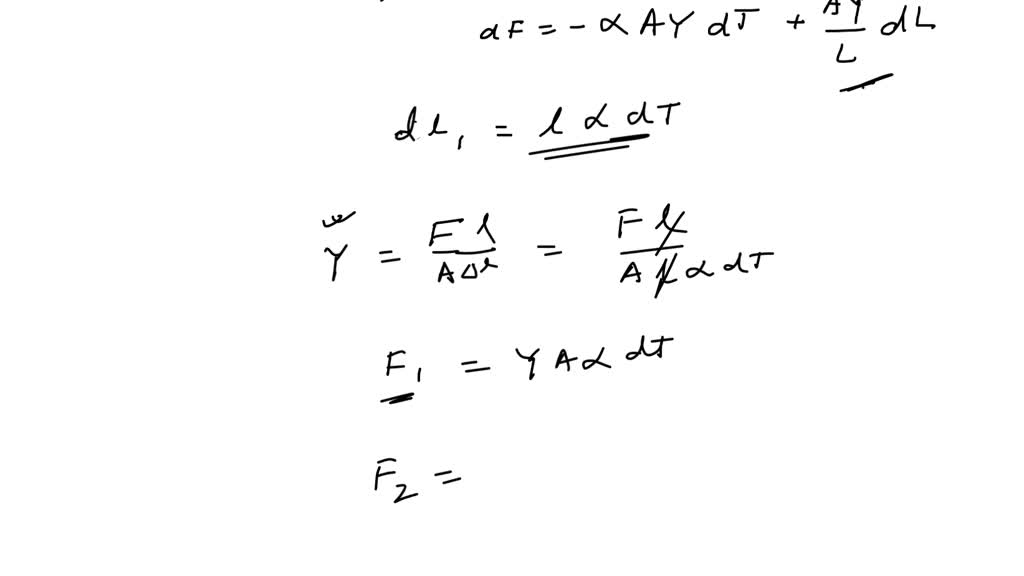 dF = - α A Y dT + AY/L dL
dl₁ = l α dT
Y = F l / A Δl = F l / A l α dT
F₁ = Y A α dT
F₂ =